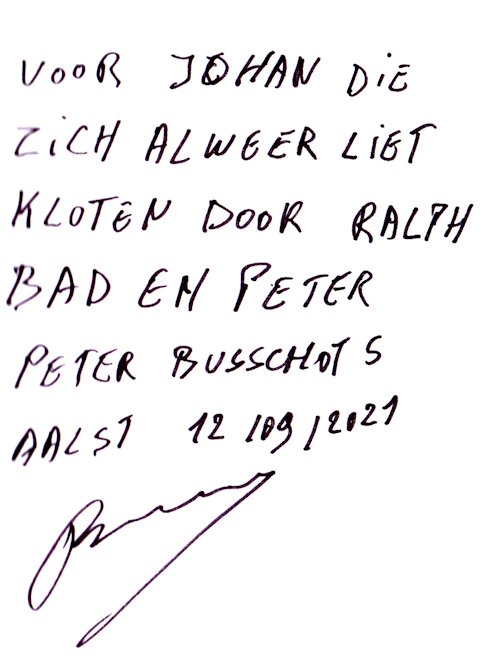 VOOR JOHAN DIE
ZICH ALWEER LIET
KLOTEN DOOR RALPH
BAD EN PETER
PETER BUSSCHOTS
AALST 12/09/2021